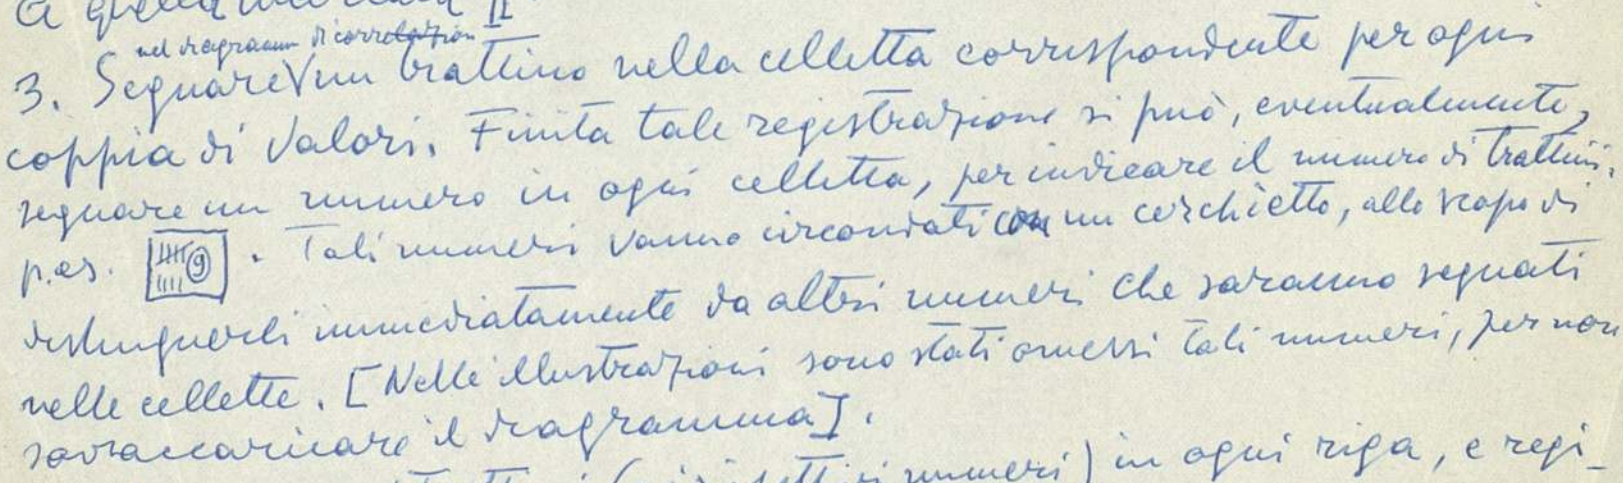 nel diagramma di correlazion
3. Segnare V un trattino nella celletta corrispondente per ogni
coppia di valori. Finita tale registrazione si può, eventualmente,
segnare un numero in ogni celletta, per indicare il numero di trattini,
p.es. 9 . Tali numeri vanno circondati con un cerchietto, allo scopo di
distinguerli immediatamente da altri numeri che saranno segnati
nelle cellette. [Nelle illustrazioni sono stati omessi tali numeri, per non
sovraccaricare il diagramma].
numeri) in ogni riga, e regi-